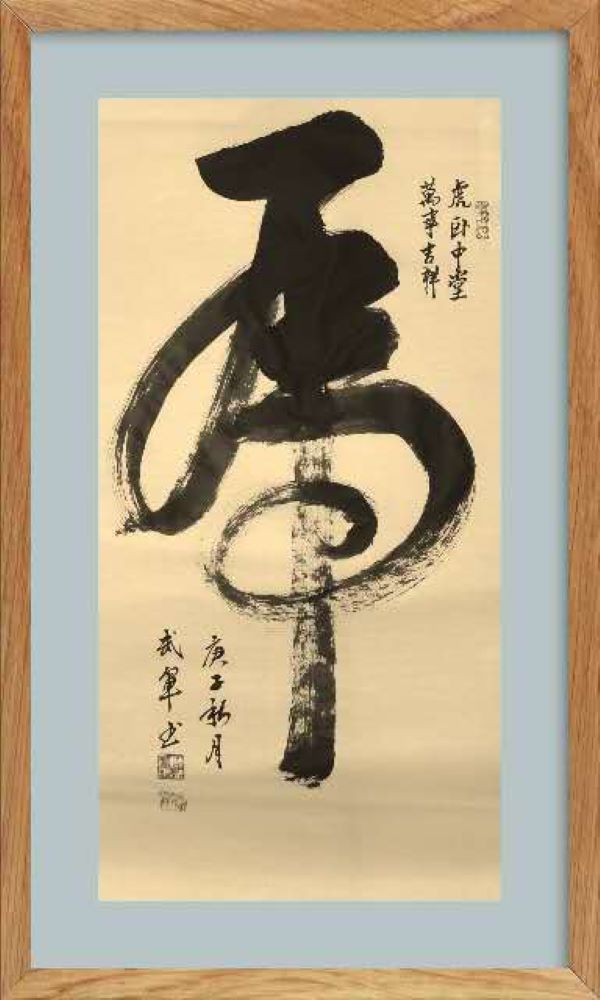 虎
虎卧中堂
萬事吉祥
庚子秋月
武軍书